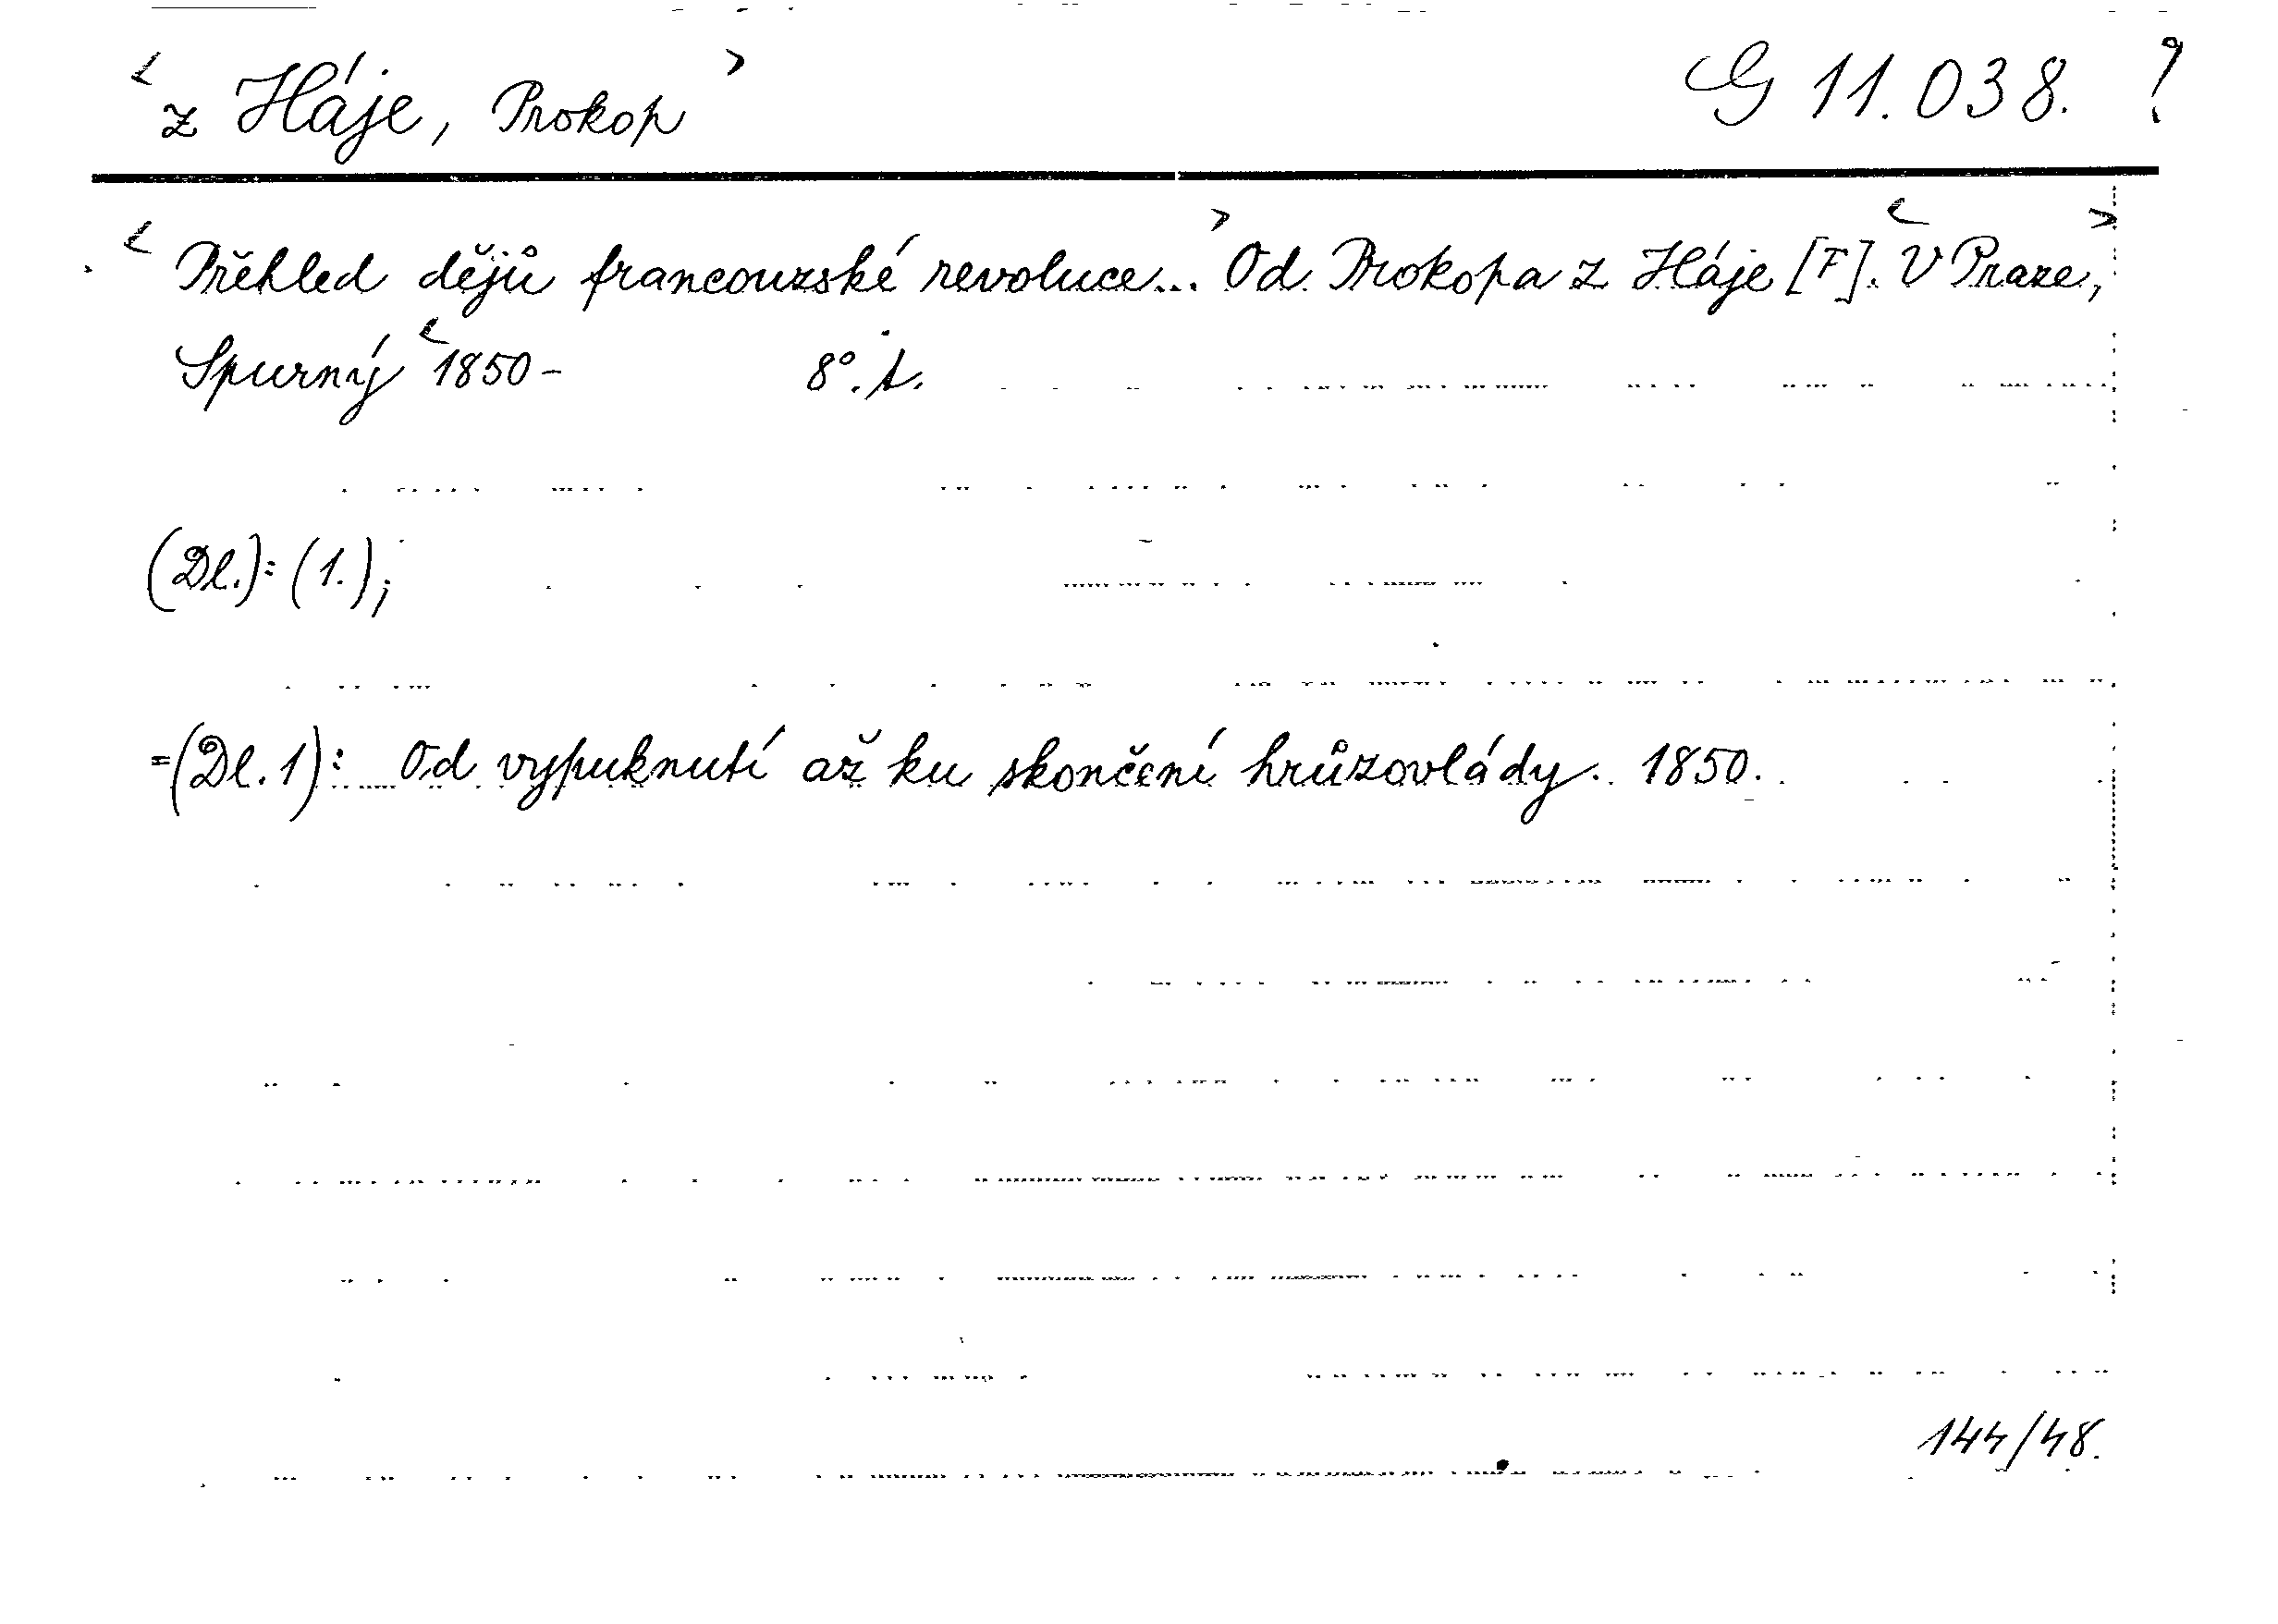 < z Háje, Prokop > G 11.038. ?
< Přehled dějů francouzské revoluce... > Od Prokopa z Háje [F]. < V Praze, >
Spurný < 1850 - 8°. A.
(Dl.): (1.);
=(Dl. 1): Od vypuknutí až ku skončení hrůzovlády. 1850.
144/48.